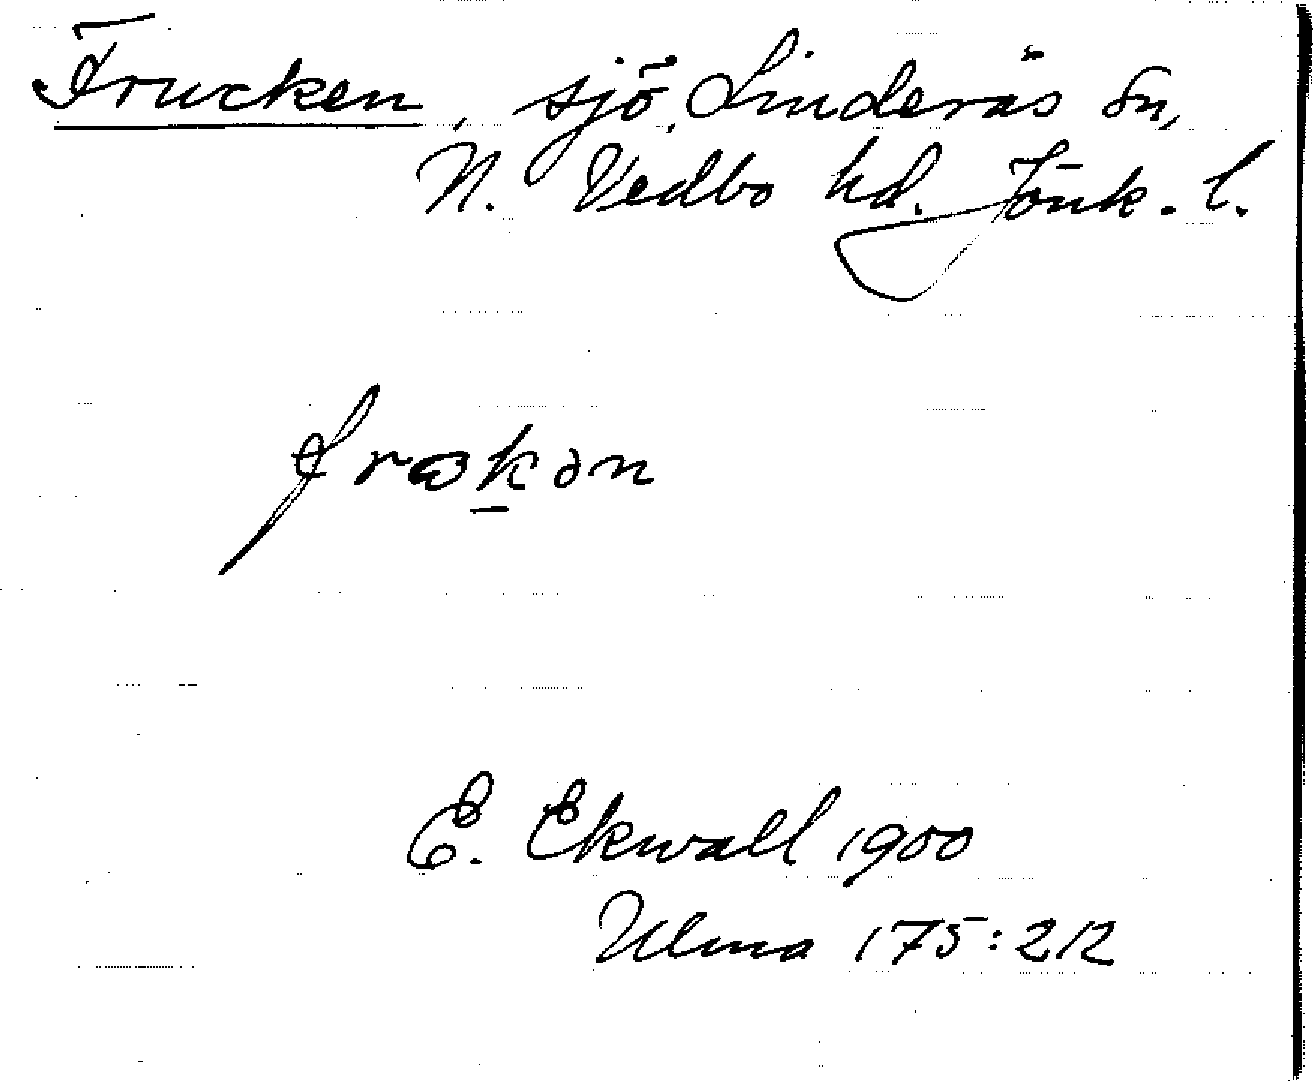 Frucken, sjö, Linderås sn,
N. Vedbo hd. Jönk. l.
frωkən
E. Ekwall 1900
Ulma 175:212